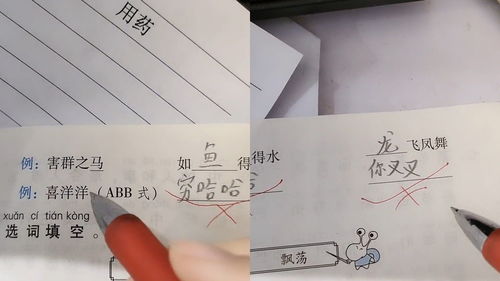 用药
例：害群之马
如 鱼 得得水
例：喜洋洋（ABB 式）
穷哈哈
xuǎn cí tián kòng
选词填空。
龙 飞凤舞
你又又
飘荡